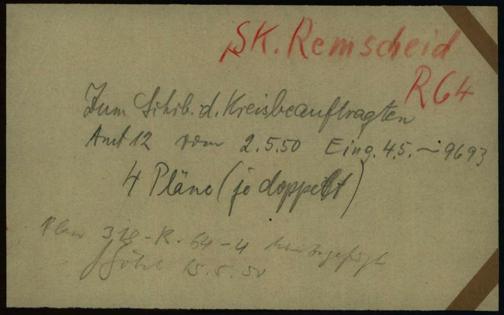 SK. Remscheid
R64
Zum Schrb. d. Kreisbeauftragten
Amt 12 vom 2.5.50 Eing. 4.5. – 9693
4 Pläne (je doppelt)
Plan 318-R. 64-4
15.5.50